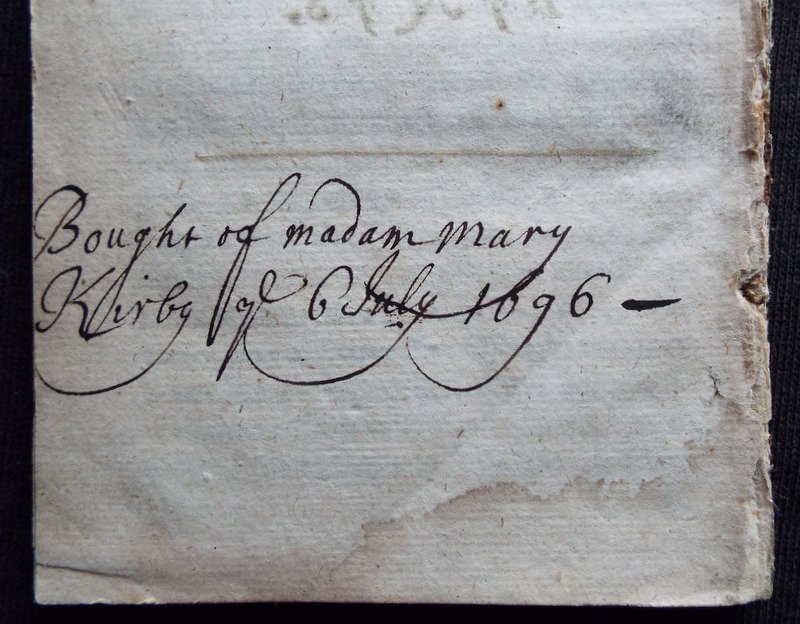 Bought of madam Mary
Kirby ye 6 July 1696 —